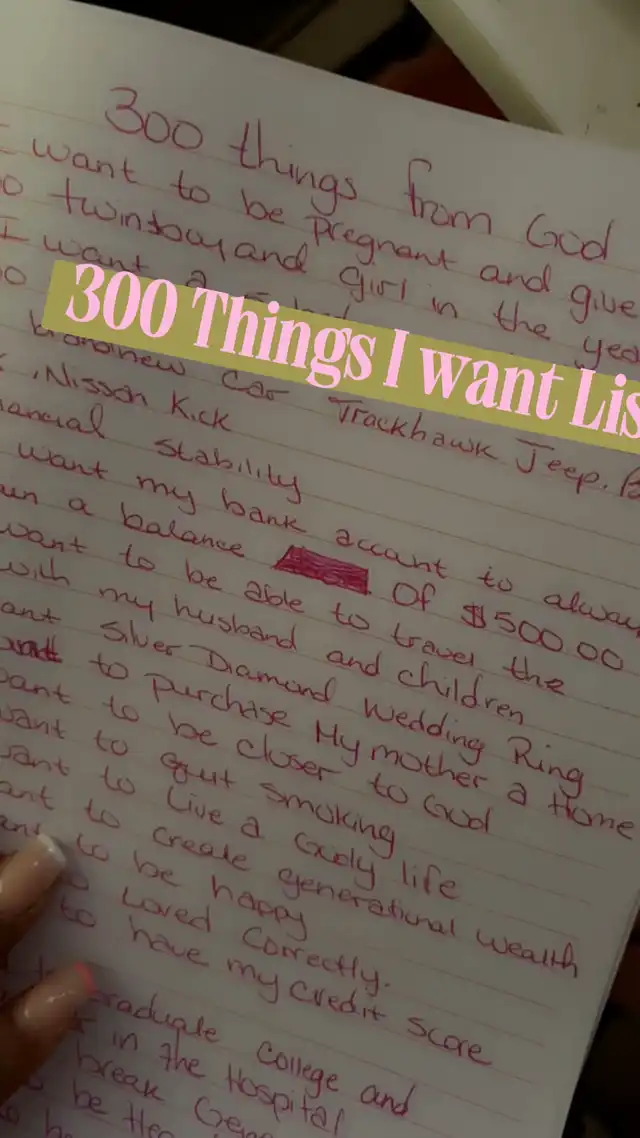 300 things from God
I want to be pregnant and give
twinboy and Girl in the year
I want a
300 Things I want Lis
brandnew Car Trackhawk Jeep.
Nisson Kick
ancial Stability
want my bank accant to alway
un a balance Of $500.00
want to be able to travel the
with my husband and children
ant Silver Diamond Wedding Ring
to purchase My mother a Home
ant to be closer to God
want to quit Smoking
want to Live a Godly life
ant to create generational wealth
ant to be happy
Loved Correctly.
to have my Credit Score
graduate College and
in the Hospital
break Gene
be Hea